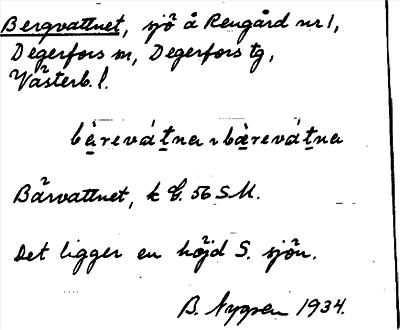 Bergvattnet, sjö å Rengård nr 1,
Degerfors sn, Degerfors tg,
Västerb. l.
bàrevátna ~ bàrevátna
Bärvattnet, k G. 56 S.M.
Det ligger en höjd S. sjön.
B. Nygren 1934.